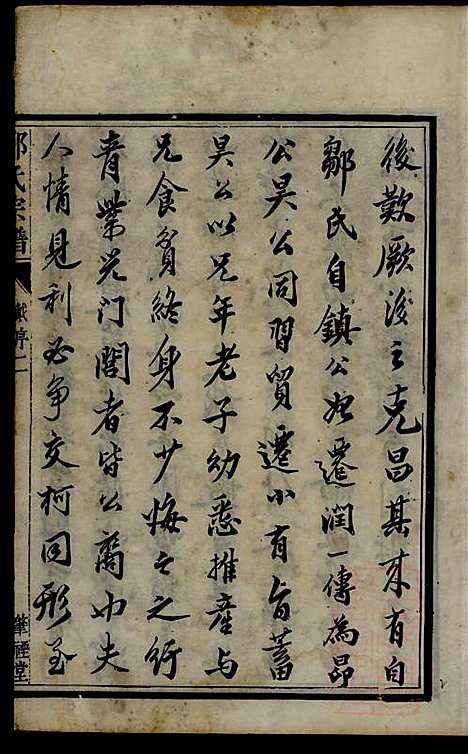 後歎厥後之克昌其來有自
鄒氏自鎮公始遷潤一傳為昂
公昊公同習貿遷小有旨蓄
昊公以兄年老子幼悉推產與
兄食貧終身不少悔之之行
青業光門閭者皆公裔也夫
人情見利必爭交柯同形至
鄒氏宗譜
序二
肇禋堂